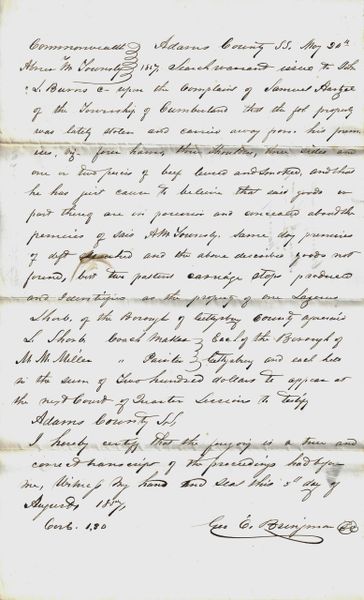 Commonwealth Adams County SS, May 20th
Abner M Townsly 1857, Search warrant issue to Geo
L. Burns C upon the Complaint of Samuel Hartzel
of the Township of Cumberland that the fol property
was lately stolen and carried away from his prem
ises, of four hams, three shoulders, three sides and
one or two pieces of beef cured and smoked, and that
he has just cause to believe that said goods in
part thereof are in possession and concealed about the
premises of said A M Townsly. same day premises
of deft searched and the above described goods not
found, but two pattent carriage stops produced
and Identified as the property of one Lazarus
Shorb, of the Borough of Gettysburg County aforesaid
L Shorb Coach Maker Each of the Borough of
M. M. Miller " Painter Gettysburg and each held
in the sum of Two hundred dollars to appear at
the next Court of Quarter Sessions to testify
Adams County SS,
I hereby certify that the foregoing is a true and
correct transcript of the proceedings had before
me, Witness my hand and seal this 5th day of
Augusts 1857,
Cost. 1.30 Geo E. Bringman